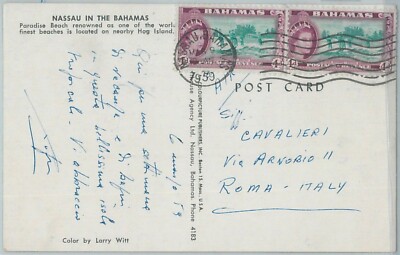 NASSAU IN THE BAHAMAS
Paradise Beach renowned as one of the world
finest beaches is located on nearby Hog Island.
Qui per una settimana
di vacanze e di
in questa bellissima isola
tropicale. Vi abbraccio
6 marzo 59
Color by Larry Witt
COLOURPICTURE PUBLISHERS, INC. Boston 15, Mass. U.S.A.
Agency Ltd. Nassau, Bahamas. Phone 4183
BAHAMAS
BAHAMAS
1959
POST CARD
CAVALIERI
Via Arnobio 11
ROMA - ITALY